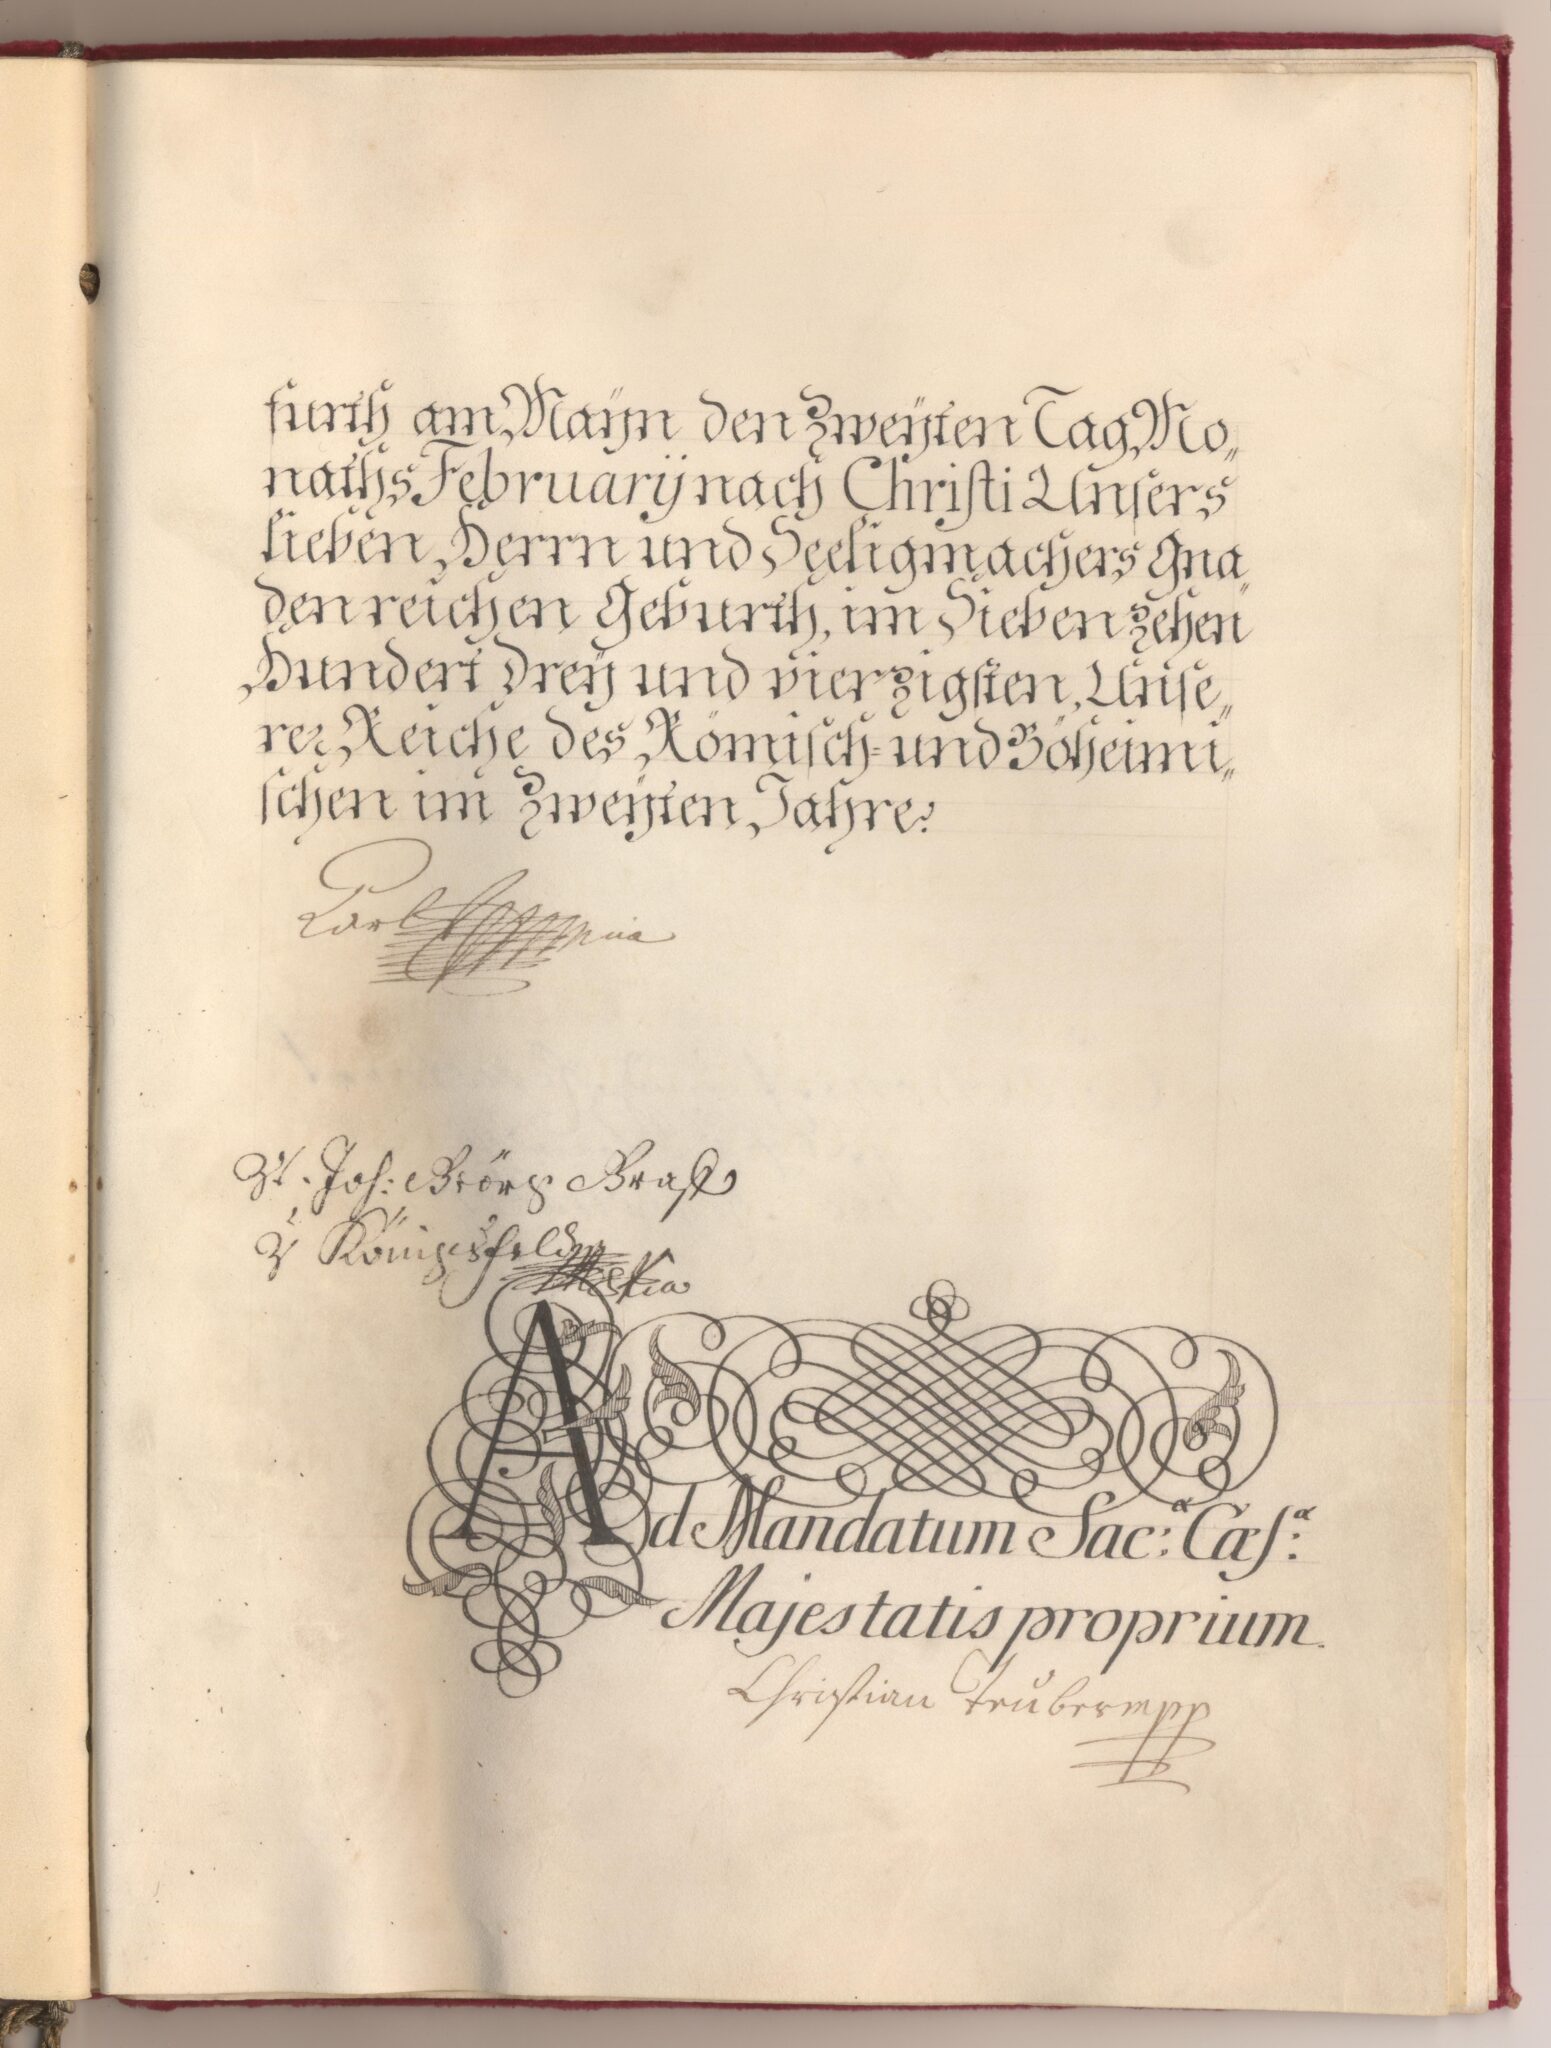 furth am Maÿn den Zweÿten Tag Mo„
naths Februarÿ nach Christi Unsers
lieben Herrn und Seeligmachers Gna„
denreichen Geburth, im Siebenzehen
Hundert Dreÿ und vierzigsten, Unse„
rer Reiche des Römisch= und Böheimi„
schen im Zweÿten Jahre.
Carl
Vt. Joh: Geörg
Vt Königsfeld
Ad Mandatum Sac:ᵃ Cæs:ᵃ
Majestatis proprium.
Christian Teuber mpp